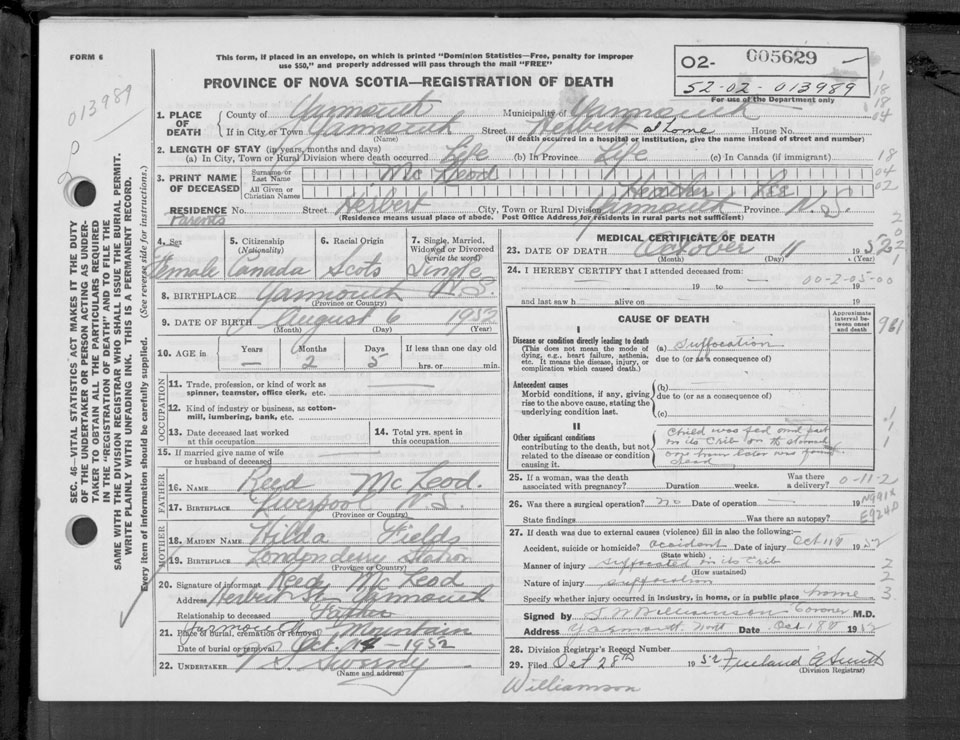 FORM 6
This form, if placed in an envelope, on which is printed "Dominion Statistics—Free, penalty for improper
use $50," and properly addressed will pass through the mail "FREE"
PROVINCE OF NOVA SCOTIA—REGISTRATION OF DEATH
O2- 005629 —
52-02-013989
For use of the Department only
013989
1. PLACE OF DEATH
County of Yarmouth Municipality of Yarmouth
If in City or Town Yarmouth Street Herbert at home House No.
(Name) (If death occurred in a hospital or institution, give the name instead of street and number)
2. LENGTH OF STAY (in years, months and days)
(a) In City, Town or Rural Division where death occurred Life (b) In Province Life (c) In Canada (if immigrant)
3. PRINT NAME OF DECEASED
Surname or Last Name McLeod
All Given or Christian Names Heather
RESIDENCE No. Street Herbert City, Town or Rural Division Yarmouth Province N.S.
Parents (Residence means usual place of abode. Post Office Address for residents in rural parts not sufficient)
4. Sex Female
5. Citizenship (Nationality) Canada
6. Racial Origin Scots
7. Single, Married, Widowed or Divorced (write the word) Single
8. BIRTHPLACE Yarmouth N.S.
(Province or Country)
9. DATE OF BIRTH August 6 1952
(Month) (Day) (Year)
10. AGE in Years — Months 2 Days 5 If less than one day old
hrs. or min.
OCCUPATION
11. Trade, profession, or kind of work as
spinner, teamster, office clerk, etc.
12. Kind of industry or business, as cotton-
mill, lumbering, bank, etc.
13. Date deceased last worked
at this occupation
14. Total yrs. spent in
this occupation
15. If married give name of wife
or husband of deceased
FATHER
16. NAME Reed McLeod.
17. BIRTHPLACE Liverpool N.S.
(Province or Country)
MOTHER
18. MAIDEN NAME Hilda Fields
19. BIRTHPLACE Londonderry Station
(Province or Country)
20. Signature of informant Reed McLeod
Address Herbert St. Yarmouth
Relationship to deceased Father
21. Place of burial, cremation or removal Mountain
Date of burial or removal Oct. 14 - 1952
22. UNDERTAKER Sweeny
(Name and address)
MEDICAL CERTIFICATE OF DEATH
23. DATE OF DEATH October 11 1952
(Month) (Day) (Year)
24. I HEREBY CERTIFY that I attended deceased from:
19 to 19
and last saw h alive on 19
00-2-05-00
CAUSE OF DEATH
Approximate interval between onset and death
961
I
Disease or condition directly leading to death
(This does not mean the mode of
dying, e.g., heart failure, asthenia,
etc. It means the disease, injury, or
complication which caused death.)
(a) Suffocation
due to (or as a consequence of)
Antecedent causes
Morbid conditions, if any, giving
rise to the above cause, stating the
underlying condition last.
(b)
due to (or as a consequence of)
(c)
II
Other significant conditions
contributing to the death, but not
related to the disease or condition
causing it.
Child was fed and put
in its Crib on its stomach
one hour later was found
dead
25. If a woman, was the death
associated with pregnancy? Duration weeks. Was there
a delivery?
0-11-2
26. Was there a surgical operation? no Date of operation —
State findings Was there an autopsy?
N991X
E924.0
27. If death was due to external causes (violence) fill in also the following:
Accident, suicide or homicide? accident Date of injury Oct 11th 1952
(State which)
Manner of injury suffocated in its Crib
(How sustained)
Nature of injury suffocation
Specify whether injury occurred in industry, in home, or in public place home
Signed by Williamson Coroner M.D.
Address Yarmouth North Date Oct 18th 1952
28. Division Registrar's Record Number
29. Filed Oct 28th 1952 Smith
(Division Registrar)
Williamson
SEC. 46—VITAL STATISTICS ACT MAKES IT THE DUTY
OF THE UNDERTAKER OR PERSON ACTING AS UNDER-
TAKER TO OBTAIN ALL THE PARTICULARS REQUIRED
IN THE "REGISTRATION OF DEATH" AND TO FILE THE
SAME WITH THE DIVISION REGISTRAR WHO SHALL ISSUE THE BURIAL PERMIT.
WRITE PLAINLY WITH UNFADING INK. THIS IS A PERMANENT RECORD.
Every item of information should be carefully supplied. (See reverse side for instructions.)